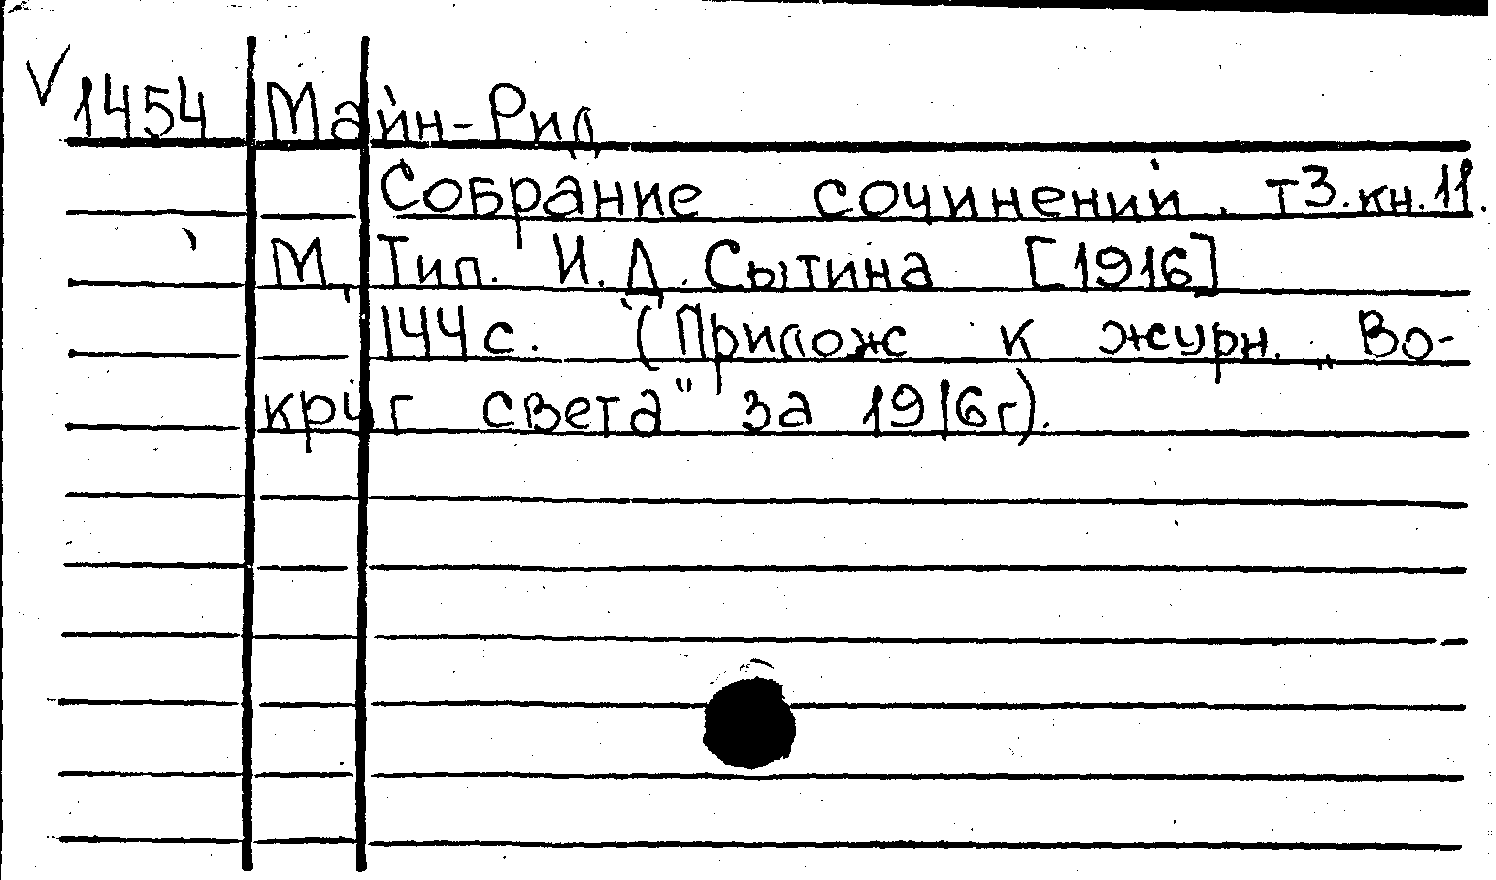 V 1454 Майн-Рид
Собрание сочинений. т3. кн. 11.
М, Тип. И. Д. Сытина [1916]
144 с. (Прилож к журн. „Во-
круг света" за 1916г).